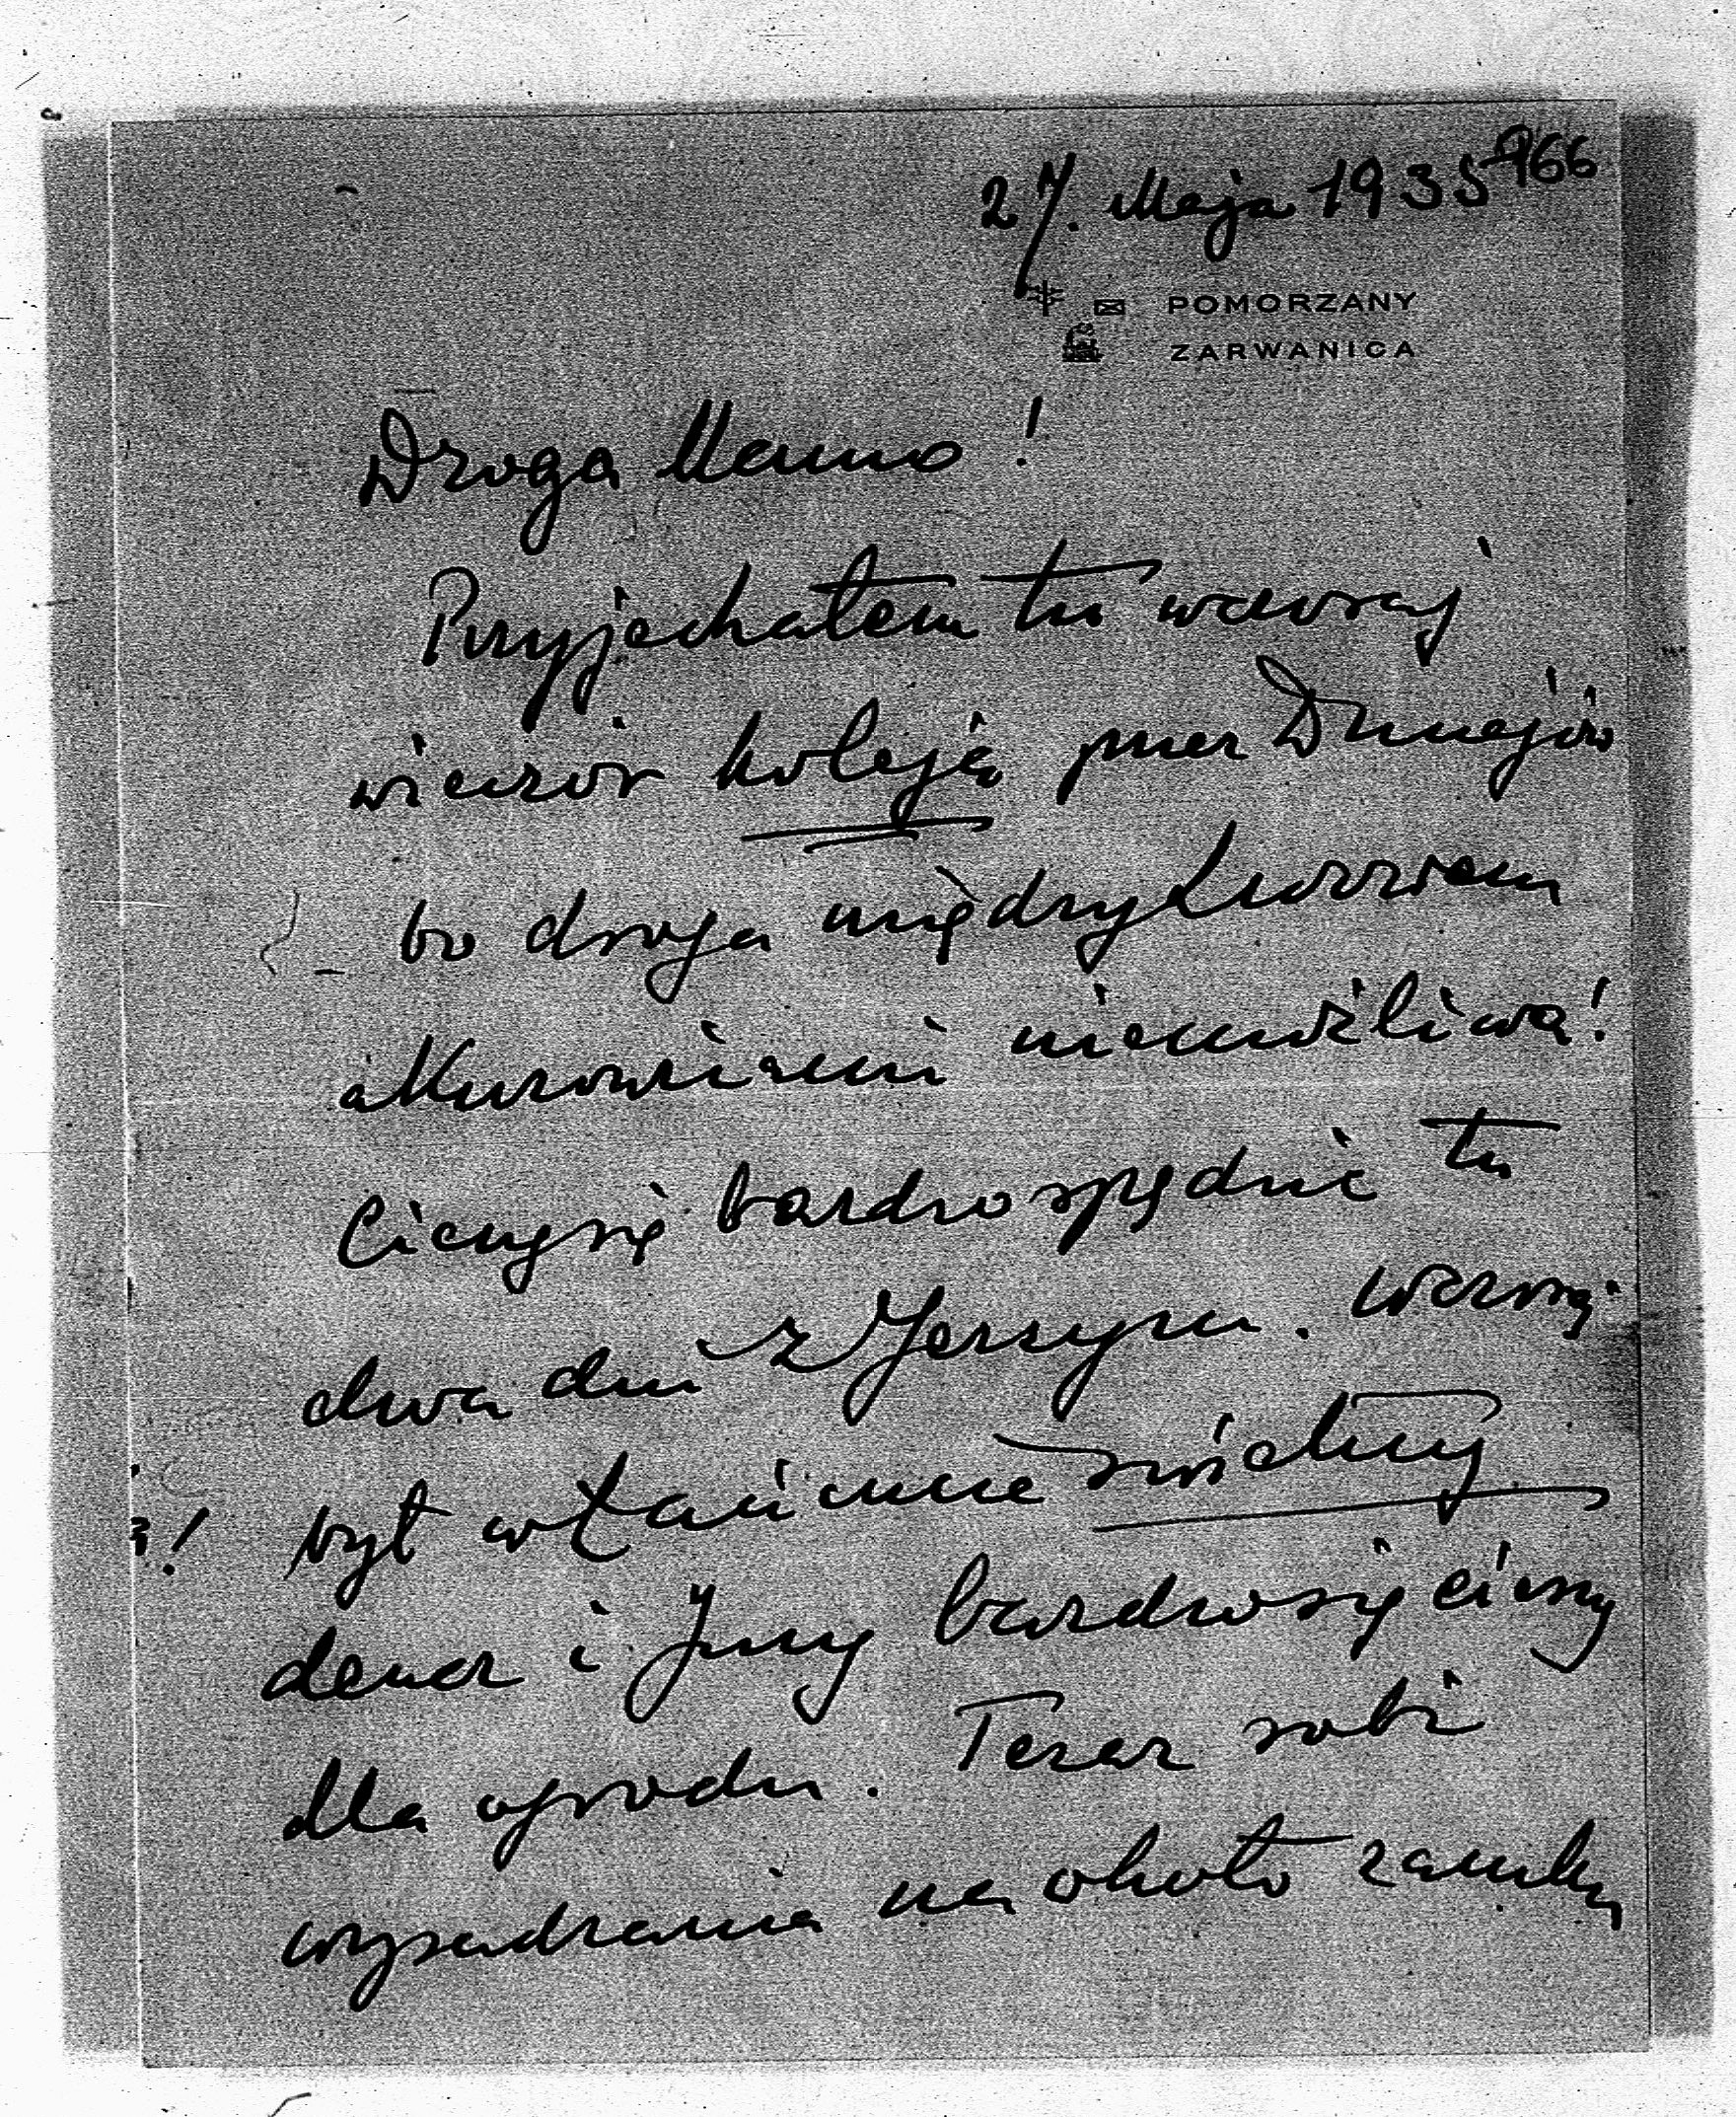 27. Maja 1935 966
POMORZANY
ZARWANICA
Droga Mamo!
Przyjechałem tu wczoraj
wieczór koleją przez Dunajów
bo droga między
a Kurowicami niemożliwa!
Cieszę się bardzo spędzić tu
dwa dni z Jerzym. Wczoraj
był właśnie świetny
deszcz i Jurry bardzo się cieszy
dla ogrodu. Teraz robi
wysadzania na około zamku